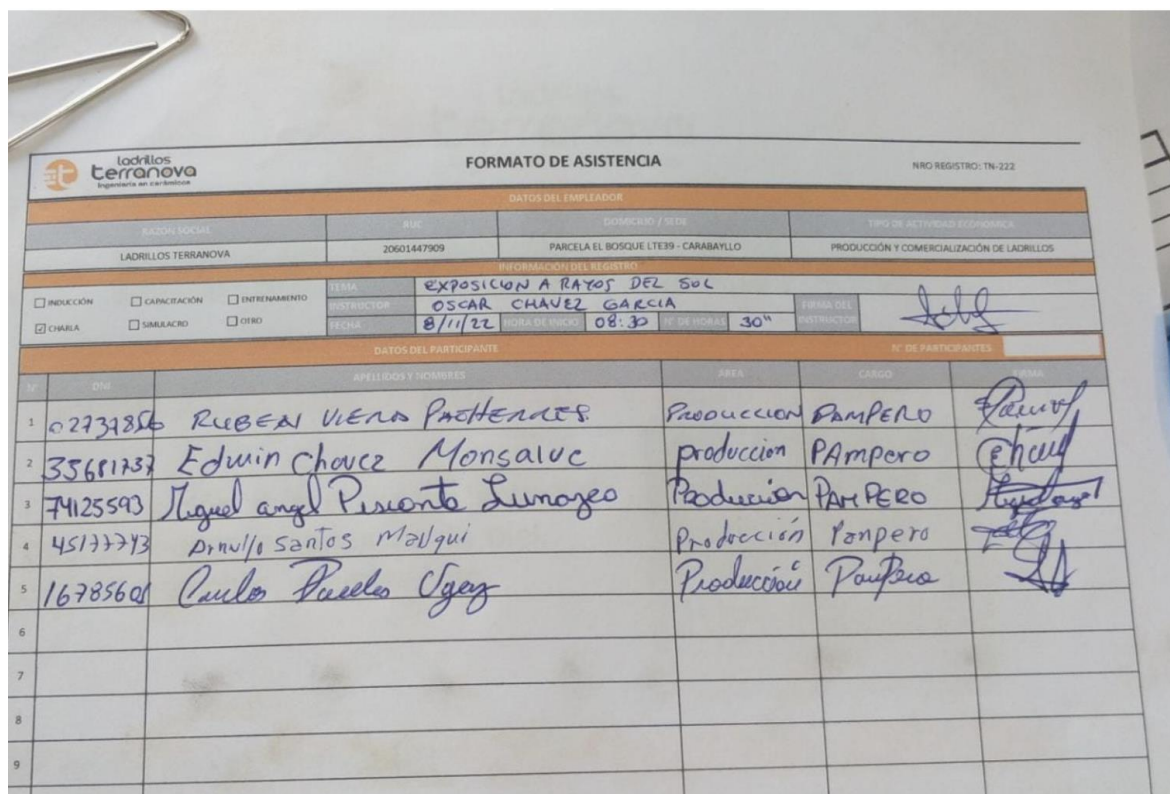 ladrillos
terranova
Ingeniería en cerámicos
FORMATO DE ASISTENCIA
NRO REGISTRO: TN-222
DATOS DEL EMPLEADOR
RAZÓN SOCIAL RUC DOMICILIO / SEDE TIPO DE ACTIVIDAD ECONÓMICA
LADRILLOS TERRANOVA 20601447909 PARCELA EL BOSQUE LTE39 - CARABAYLLO PRODUCCIÓN Y COMERCIALIZACIÓN DE LADRILLOS
INFORMACIÓN DEL REGISTRO
INDUCCIÓN CAPACITACIÓN ENTRENAMIENTO
CHARLA SIMULACRO OTRO
TEMA EXPOSICION A RAYOS DEL SOL
INSTRUCTOR OSCAR CHAVEZ GARCIA
FECHA 8/11/22 HORA DE INICIO 08:30 N° DE HORAS 30"
FIRMA DEL
INSTRUCTOR
DATOS DEL PARTICIPANTE N° DE PARTICIPANTES
N° DNI APELLIDOS Y NOMBRES AREA CARGO FIRMA
1 RUBEN VIERA PRODUCCION PAMPERO
2 Edwin Chavez Monsalve produccion PAmpero
3 74125593 Miguel angel Producción PAMPERO
4 Santos Producción Panpero
5 16785601 Carlos Producción Panpero
6
7
8
9